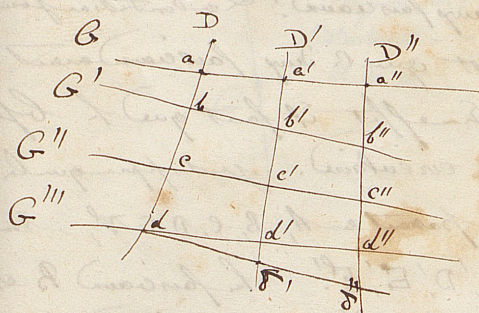 D D' D''
G a a' a''
G' b b' b''
G'' c c' c''
G''' d d' d''
δ' δ''